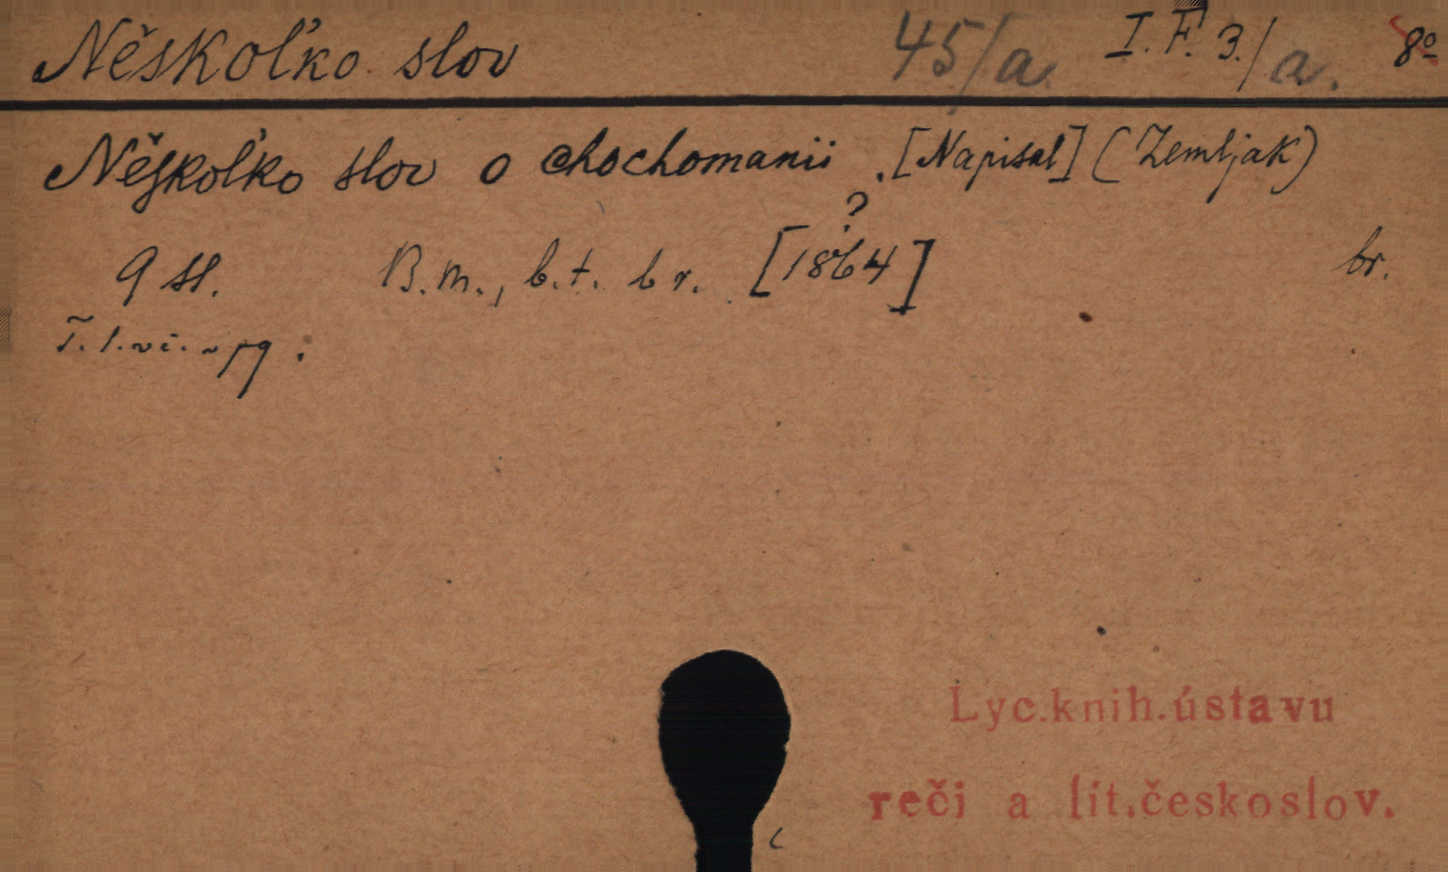 Něskoľko slov 45/a I. F. 3./a. 8º
Něskoľko slov o chochomanii. [Napisal] (Zemljak)
9 st. B. m., b. t. b r. [1864] ? br.
Lyc.knih.ústavu
reči a lit.českoslov.